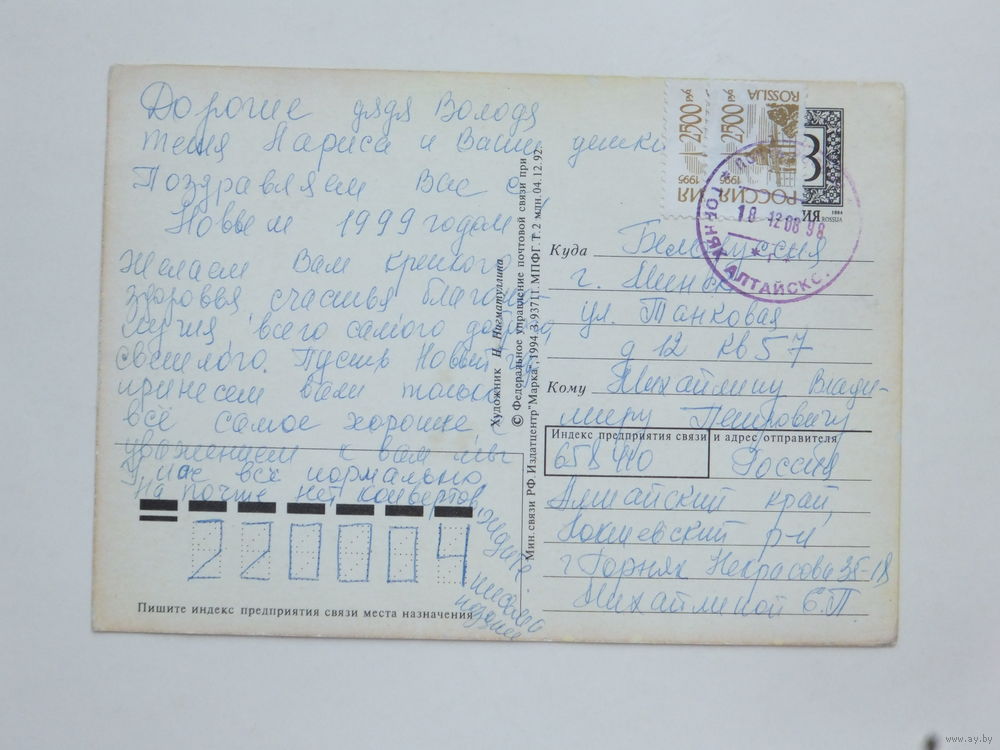 Дорогие дядя Володя
тётя Лариса и Ваши детки
Поздравляем Вас с
Новым 1999 годом
Желаем Вам крепкого
здоровья счастья благопо-
лучия всего самого доброго,
светлого. Пусть Новый год
принесет вам только
всё самое хорошее с
уважением к вам мы
У нас всё нормально
На почте нет конвертов, ждите
письмо
позже
220004
Пишите индекс предприятия связи места назначения
Художник Н. Нигматуллина
© Федеральное управление почтовой связи при
Мин. связи РФ. Издатцентр "Марка", 1994. З. 93711. МПФГ. Т. 2 млн. 04.12.92
2500 РУБ
1995
2500 РУБ
1995
РОССИЯ
ROSSIJA
З
ИЯ 1994 ROSSIJA
ГОРНЯК АЛТАЙСК
12 08 98
Куда Белоруссия
г. Минск
ул. Танковая
д 12 кв 57
Кому Михайлицу Влади-
миру Петровичу
Индекс предприятия связи и адрес отправителя
658410 Россия
Алтайский край,
Локтевский р-н
г Горняк Некрасова 35-18
Михайлиной С.П
www.ay.by